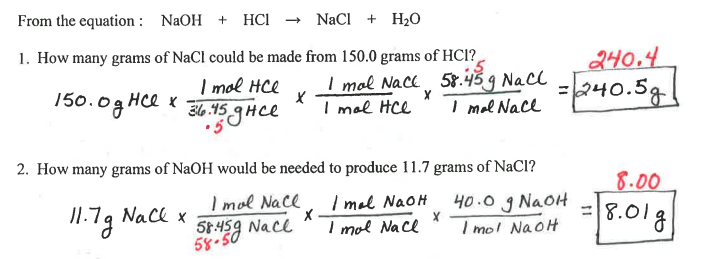 From the equation : NaOH + HCl → NaCl + H₂O
1. How many grams of NaCl could be made from 150.0 grams of HCl?
240.4
150.0g HCl x 1 mol HCl / 36.45 g HCl x 1 mol NaCl / 1 mol HCl x 58.45 g NaCl / 1 mol NaCl = 240.5g
.5
.5
2. How many grams of NaOH would be needed to produce 11.7 grams of NaCl?
8.00
11.7g NaCl x 1 mol NaCl / 58.45g NaCl x 1 mol NaOH / 1 mol NaCl x 40.0 g NaOH / 1 mol NaOH = 8.01 g
58.50